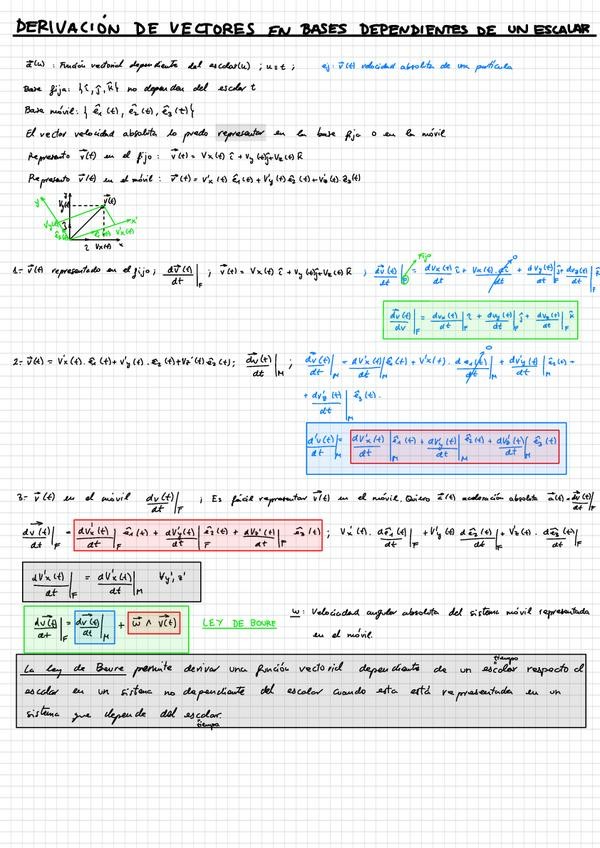 DERIVACIÓN DE VECTORES EN BASES DEPENDIENTES DE UN ESCALAR
: Función vectorial dependiente del escalar(u) ; u=t ; ej: v⃗(t) velocidad absoluta de una partícula
Base fija: {î, ĵ, k̂} no dependen del escalar t
Base móvil: { ê₁(t), ê₂(t), ê₃(t) }
El vector velocidad absoluta lo puedo representar en la base fija o en la móvil
Represento v⃗(t) en el fijo: v⃗(t) = Vx(t) î + Vy(t) ĵ + Vz(t) k̂
Represento v⃗(t) en el móvil: v⃗(t) = V'x(t) ê₁(t) + V'y(t) ê₂(t) + V'z(t) ê₃(t)
y Vy(t) v⃗(t)
V'y(t) x'
î Vx(t) x V'x(t)
Fijo 0
1.- v⃗(t) representado en el fijo; dv⃗(t)/dt|F ; v⃗(t) = Vx(t) î + Vy(t) ĵ + Vz(t) k̂ ; dv⃗(t)/dt|F = dVx(t)/dt î + Vx(t). dî/dt + dVy(t)/dt|F ĵ + dVz(t)/dt|F k̂
dv⃗(t)/dv|F = dvx(t)/dt|F î + dvy(t)/dt|F ĵ + dvz(t)/dt|F k̂
2.- v⃗(t) = V'x(t). ê₁(t) + V'y(t). ê₂(t) + Vz'(t) ê₃(t); dv⃗(t)/dt|M ; dv⃗(t)/dt|M = dV'x(t)/dt|M ê₁(t) + V'x(t). dê₁(t)/dt|M + dV'y(t)/dt|M ê₂(t) +
+ dV'z(t)/dt|M ê₃(t).
d'v(t)/dt|M = dV'x(t)/dt|M ê₁(t) + dV'y(t)/dt|M ê₂(t) + dV'z(t)/dt|M ê₃(t)
3.- v⃗(t) en el móvil dv(t)/dt|F ; Es fácil representar v⃗(t) en el móvil. Quiero a⃗(t) aceleración absoluta a⃗(t) = dv⃗(t)/dt|F
dv⃗(t)/dt|F = dV'x(t)/dt|F ê₁(t) + dV'y(t)/dt|F ê₂(t) + dVz'(t)/dt|F ê₃(t) ; Vx'(t). dê₁(t)/dt|F + V'y(t) dê₂(t)/dt|F + V'z(t). dê₃(t)/dt|F
dV'x(t)/dt|F = dV'x(t)/dt|M Vy', z'
dv⃗(t)/dt|F = dv⃗(t)/dt|M + ω⃗ ∧ v⃗(t) LEY DE BOURE ω: Velocidad angular absoluta del sistema móvil representada
en el móvil.
tiempo
La ley de Boure permite derivar una función vectorial dependiente de un escalar respecto al
escalar en un sistema no dependiente del escalar cuando esta está representada en un
sistema que depende del escalar.
tiempo